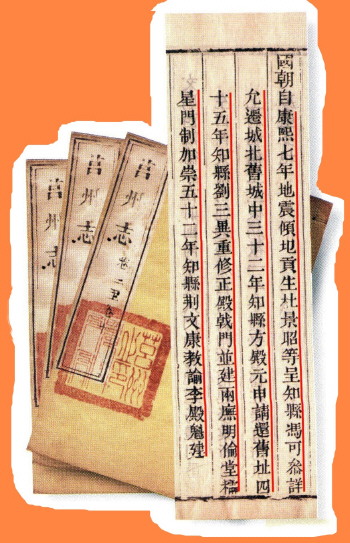 國朝自康熙七年地震傾圮貢生杜景昭等呈知縣馮可參詳
允遷城北舊城中三十二年知縣方殿元申請還舊址四
十五年知縣劉三異重修正殿戟門並建兩廡明倫堂櫺
星門制加崇五十二年知縣荆文康教諭李殿魁建
莒州志
莒州志
莒州志